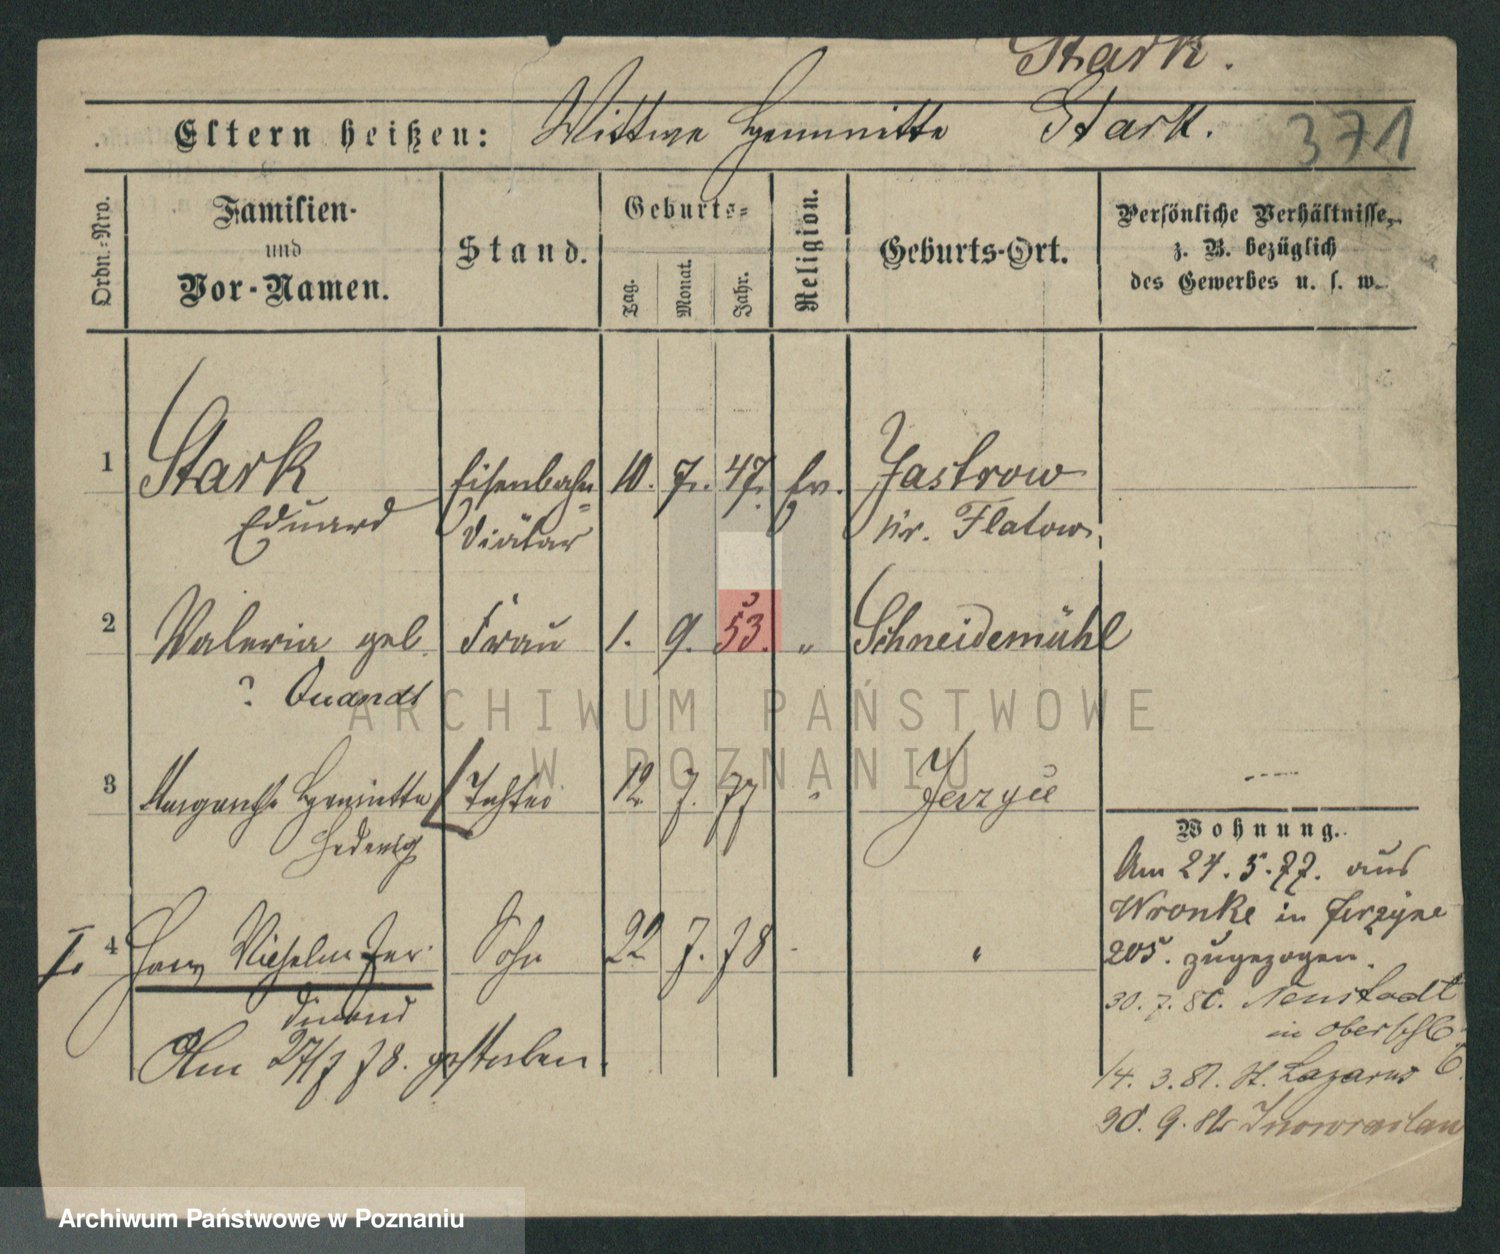 Stark.
Eltern heißen: Wittwe Henriette Stark. 371
Ordn.-Nro.
Familien-
und
Vor-Namen.
Stand.
Geburts-
Tag.
Monat.
Jahr.
Religion.
Geburts-Ort.
Persönliche Verhältnisse,
z. B. bezüglich
des Gewerbes u. s. w.
1 Stark Eisenbahn 10. 7. 47. Ev. Jastrow
Eduard Diätar Kr. Flatow
2 Valeria geb. Frau 1. 9. 53. " Schneidemühl
? Quandt
3 Margarethe Henriette Tochter 12. 7. 77 " Jerzyce
Hedwig
Wohnung.
Am 24. 5. 77. aus
Wronke in Jerzyce
I. 4 Hans Wilhelm Fer- Sohn 22 7. 78 "
205. zugezogen.
dinand
30. 7. 80. Neustadt
in Oberschl
Am 27/7 78. gestorben.
14. 3. 81. St. Lazarus
30. 9. 82 Inowrazlaw
ARCHIWUM PAŃSTWOWE
W POZNANIU
Archiwum Państwowe w Poznaniu